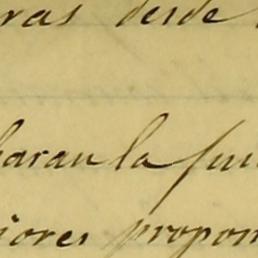 ras desde
haran la fun
ñores propon